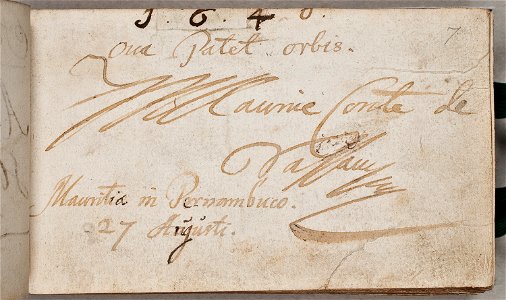 1640.
7
Qua Patet orbis.
Maurice Conte de
Nassau
Mauritia in Pernambuco.
27 Augusti.